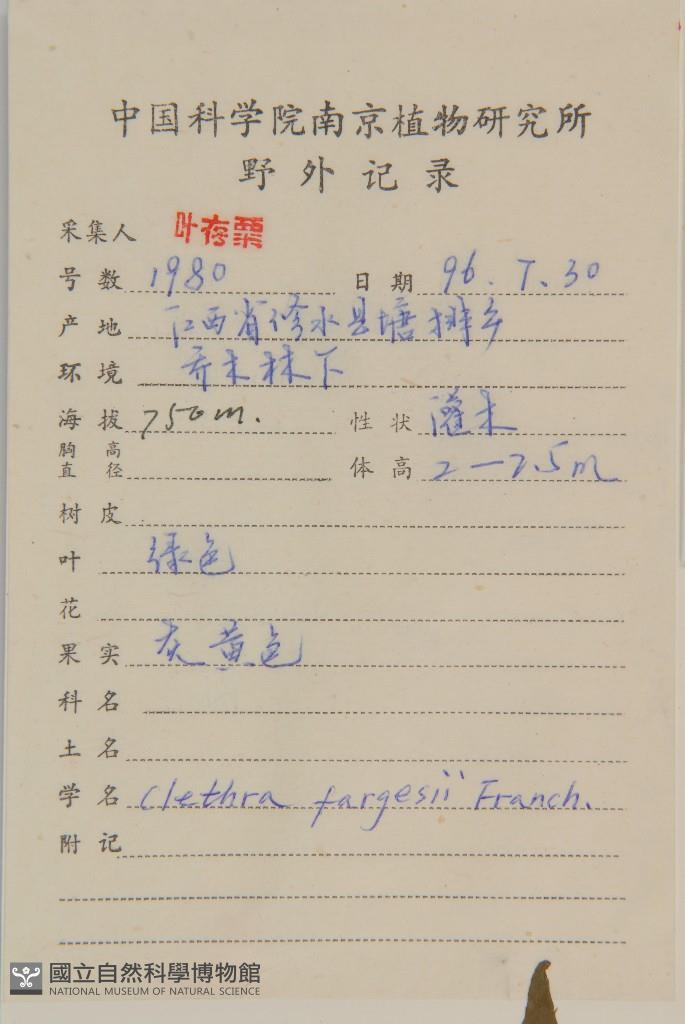 中国科学院南京植物研究所
野外记录
采集人 叶存粟
号数 1980 日期 96.7.30
产地 江西省修水县塘排乡
环境 乔木林下
海拔 750m. 性状 灌木
胸高直径 体高 2—2.5m
树皮
叶 绿色
花
果实 灰黄色
科名
土名
学名 Clethra fargesii Franch.
附记
國立自然科學博物館
NATIONAL MUSEUM OF NATURAL SCIENCE